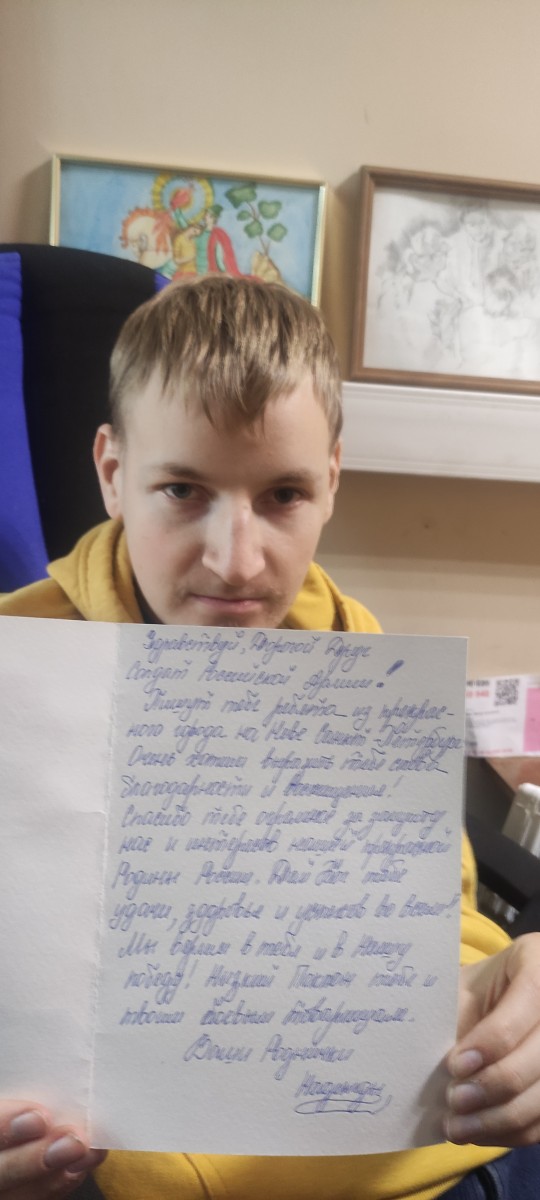 Здравствуй, Дорогой Друг
Солдат Российской Армии!
Пишут тебе ребята из прекрас-
ного города на Неве Санкт-Петербурга
Очень хотим выразить тебе слова
благодарности и восхищения!
Спасибо тебе огромное за защиту
нас и интересов нашей прекрасной
Родины России. Дай Бог тебе
удачи, здоровья и успехов во всём!
Мы верим в тебя и в нашу
победу! Низкий Поклон тебе и
твоим боевым товарищам.
Ваши Роднички